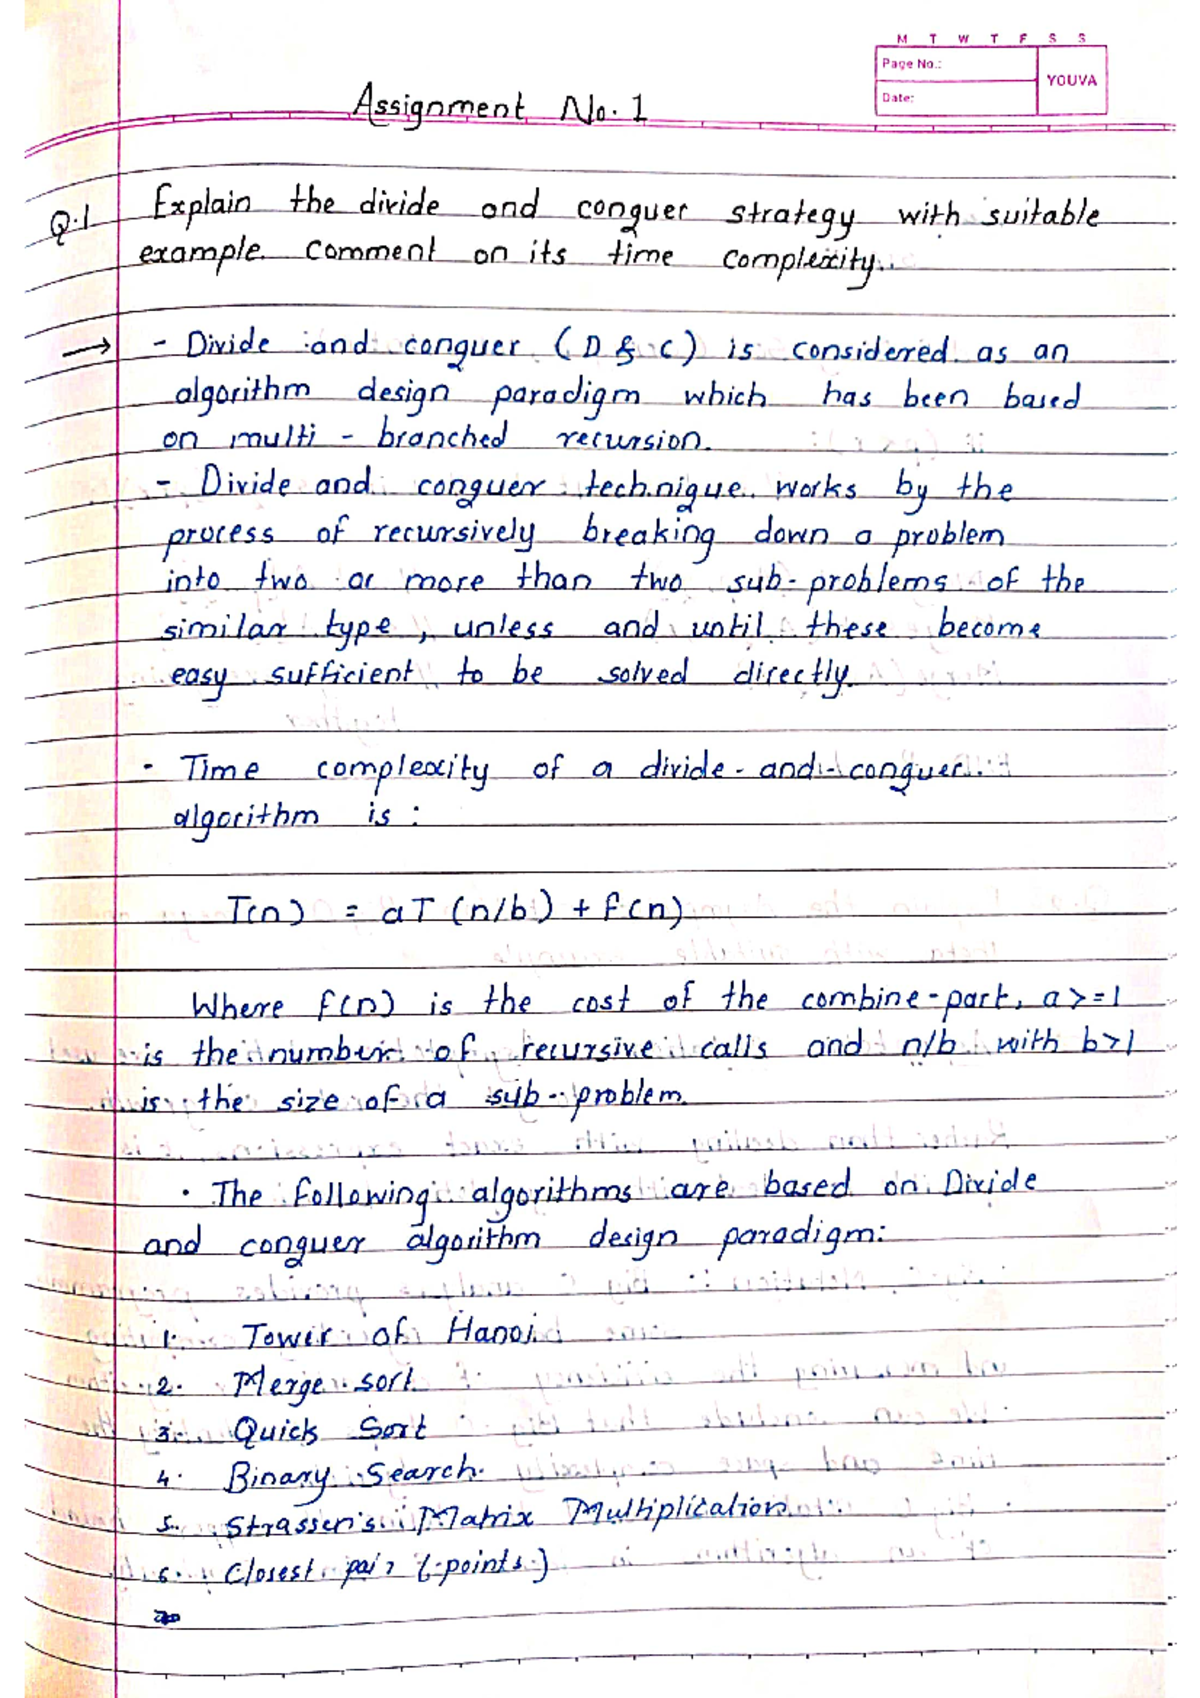 M T W T F S S
Page No.:
YOUVA
Date:
Assignment No. 1
Q.1 Explain the divide and conquer strategy with suitable
example. comment on its time complexity.
→ - Divide and conquer (D & C) is considered as an
algorithm design paradigm which has been based
on multi - branched recursion.
- Divide and conquer technique works by the
process of recursively breaking down a problem
into two or more than two sub-problems of the
similar type, unless and until these become
easy sufficient to be solved directly.
· Time complexity of a divide-and-conquer
algorithm is :
T(n) = aT (n/b) + f(n)
Where f(n) is the cost of the combine-part, a>=1
is the number of recursive calls and n/b with b>1
is the size of a sub-problem.
· The following algorithms are based on Divide
and conquer algorithm design paradigm:
1. Tower of Hanoi
2. Merge sort
3. Quick Sort
4. Binary Search.
5. Strassen's Matrix Multiplication
6. Closest pair (points)